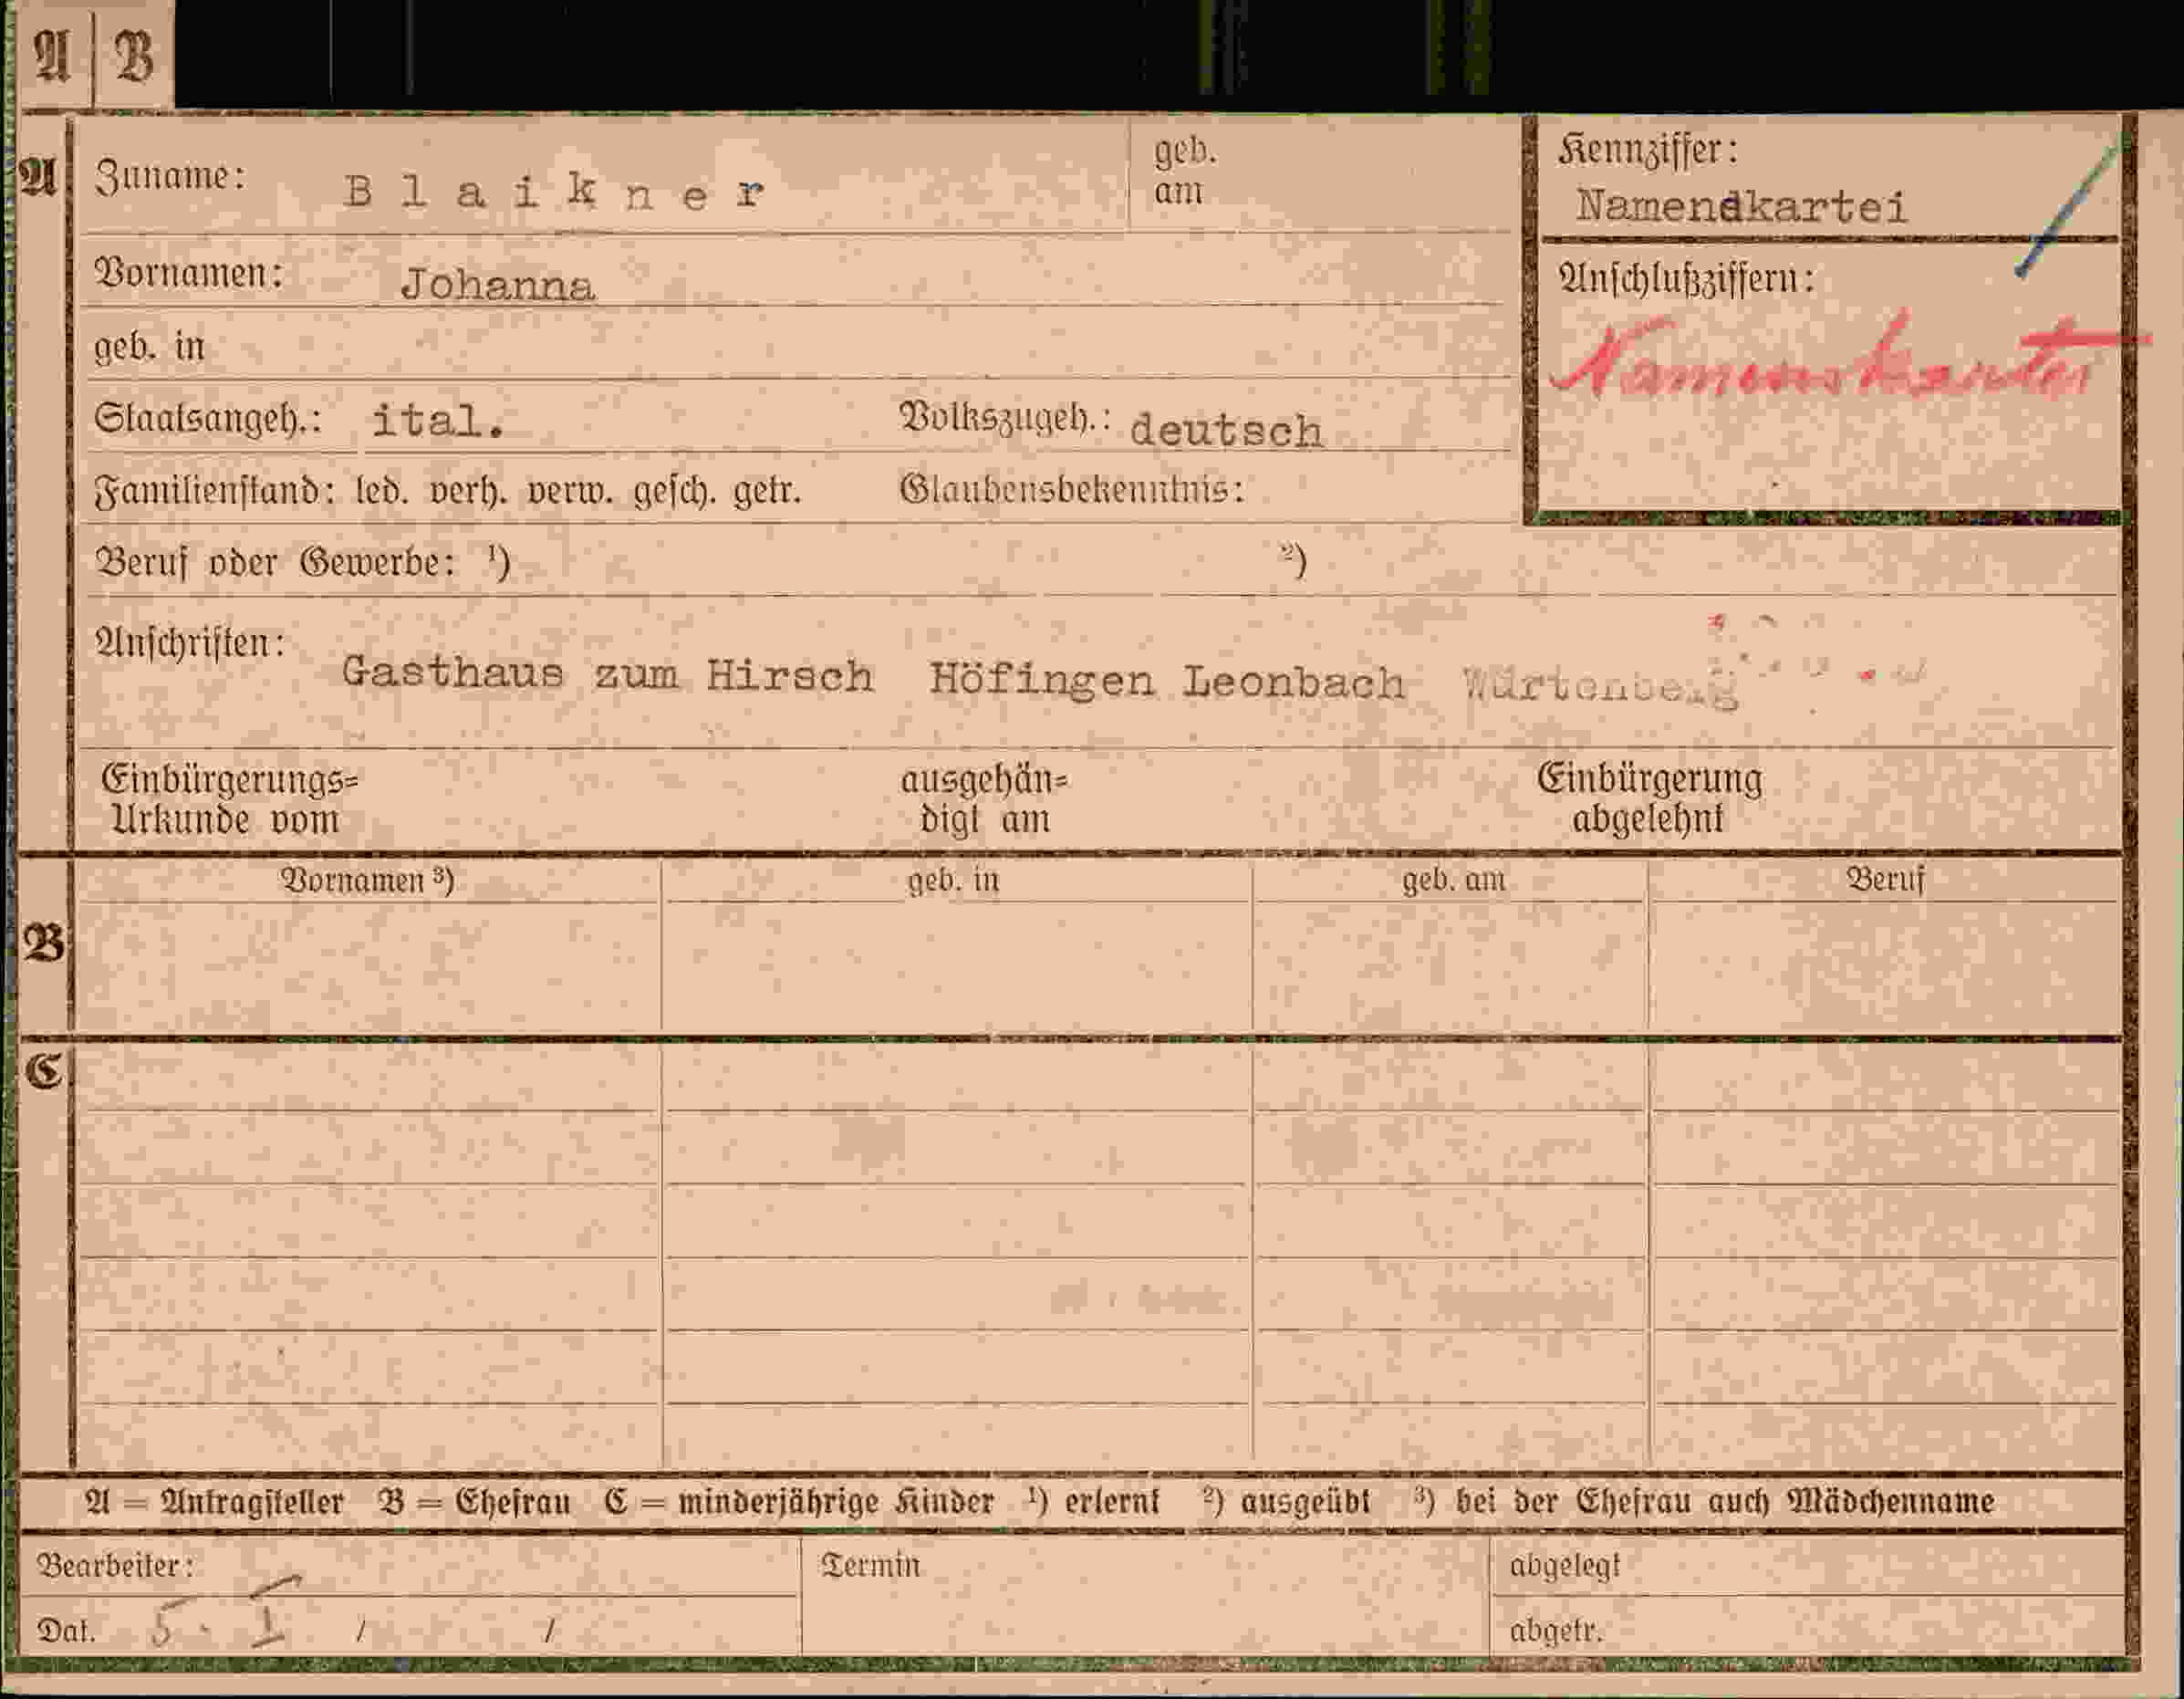 A B
A Zuname: Blaikner geb. am Kennziffer:
Namendkartei
Vornamen: Johanna Anschlußziffern:
geb. in
Staatsangeh.: ital. Volkszugeh.: deutsch
Familienstand: led. verh. verw. gesch. getr. Glaubensbekenntnis:
Beruf oder Gewerbe: ¹) ²)
Anschriften:
Gasthaus zum Hirsch Höfingen Leonbach Würtenberg
Einbürgerungs= ausgehän= Einbürgerung
Urkunde vom digt am abgelehnt
Vornamen ³) geb. in geb. am Beruf
B
C
A = Antragsteller B = Ehefrau C = minderjährige Kinder ¹) erlernt ²) ausgeübt ³) bei der Ehefrau auch Mädchenname
Bearbeiter: Termin abgelegt
Dat. 5. I / / abgetr.